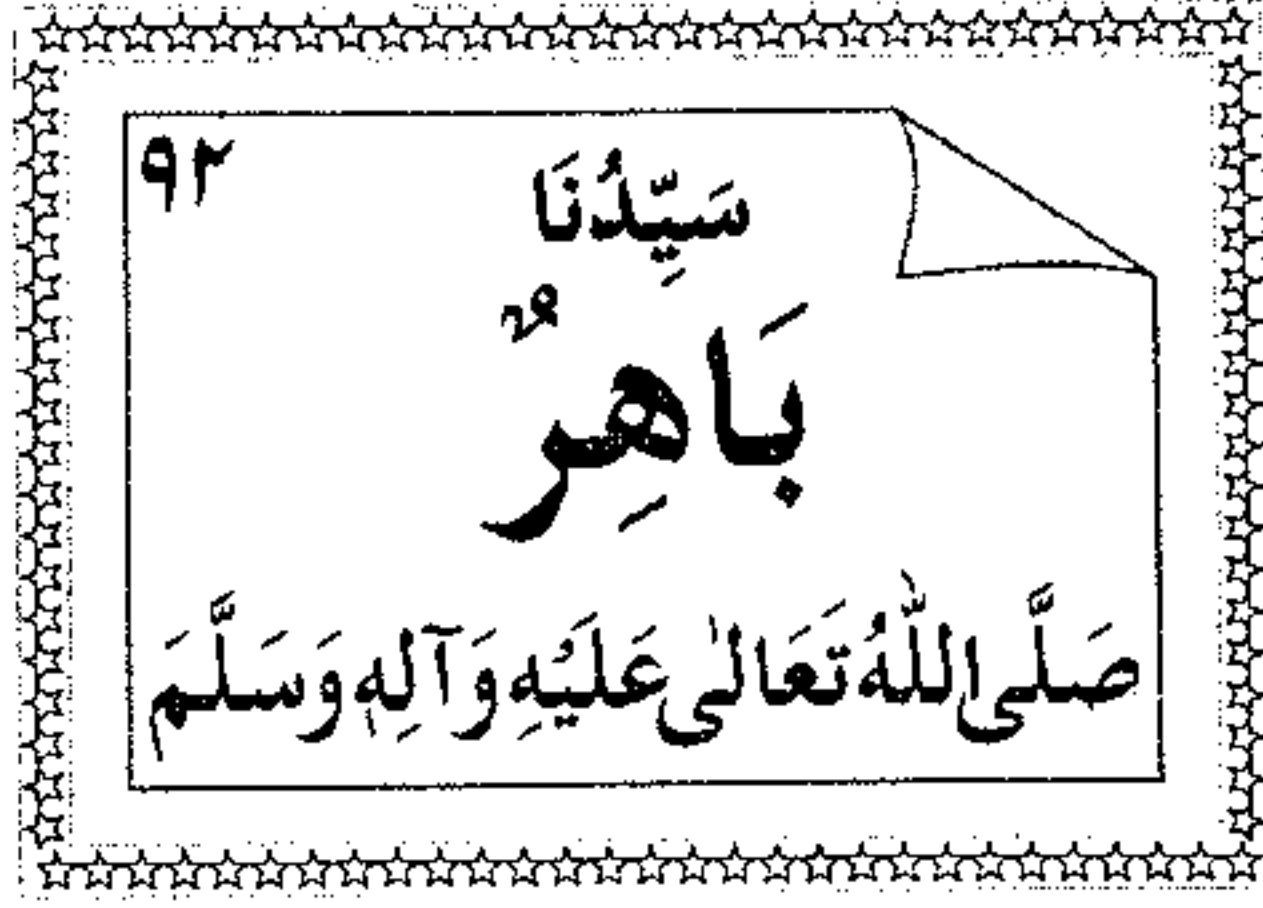 ٩٢
سَيِّدُنَا
بَاهِرٌ
صَلَّى اللّٰهُ تَعَالٰى عَلَيْهِ وَآلِهٖ وَسَلَّمَ